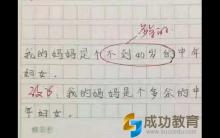 多余的
我的妈妈是个不到40岁的中年
妇女。
我的妈妈是个多余的中
年妇女。
成功教育